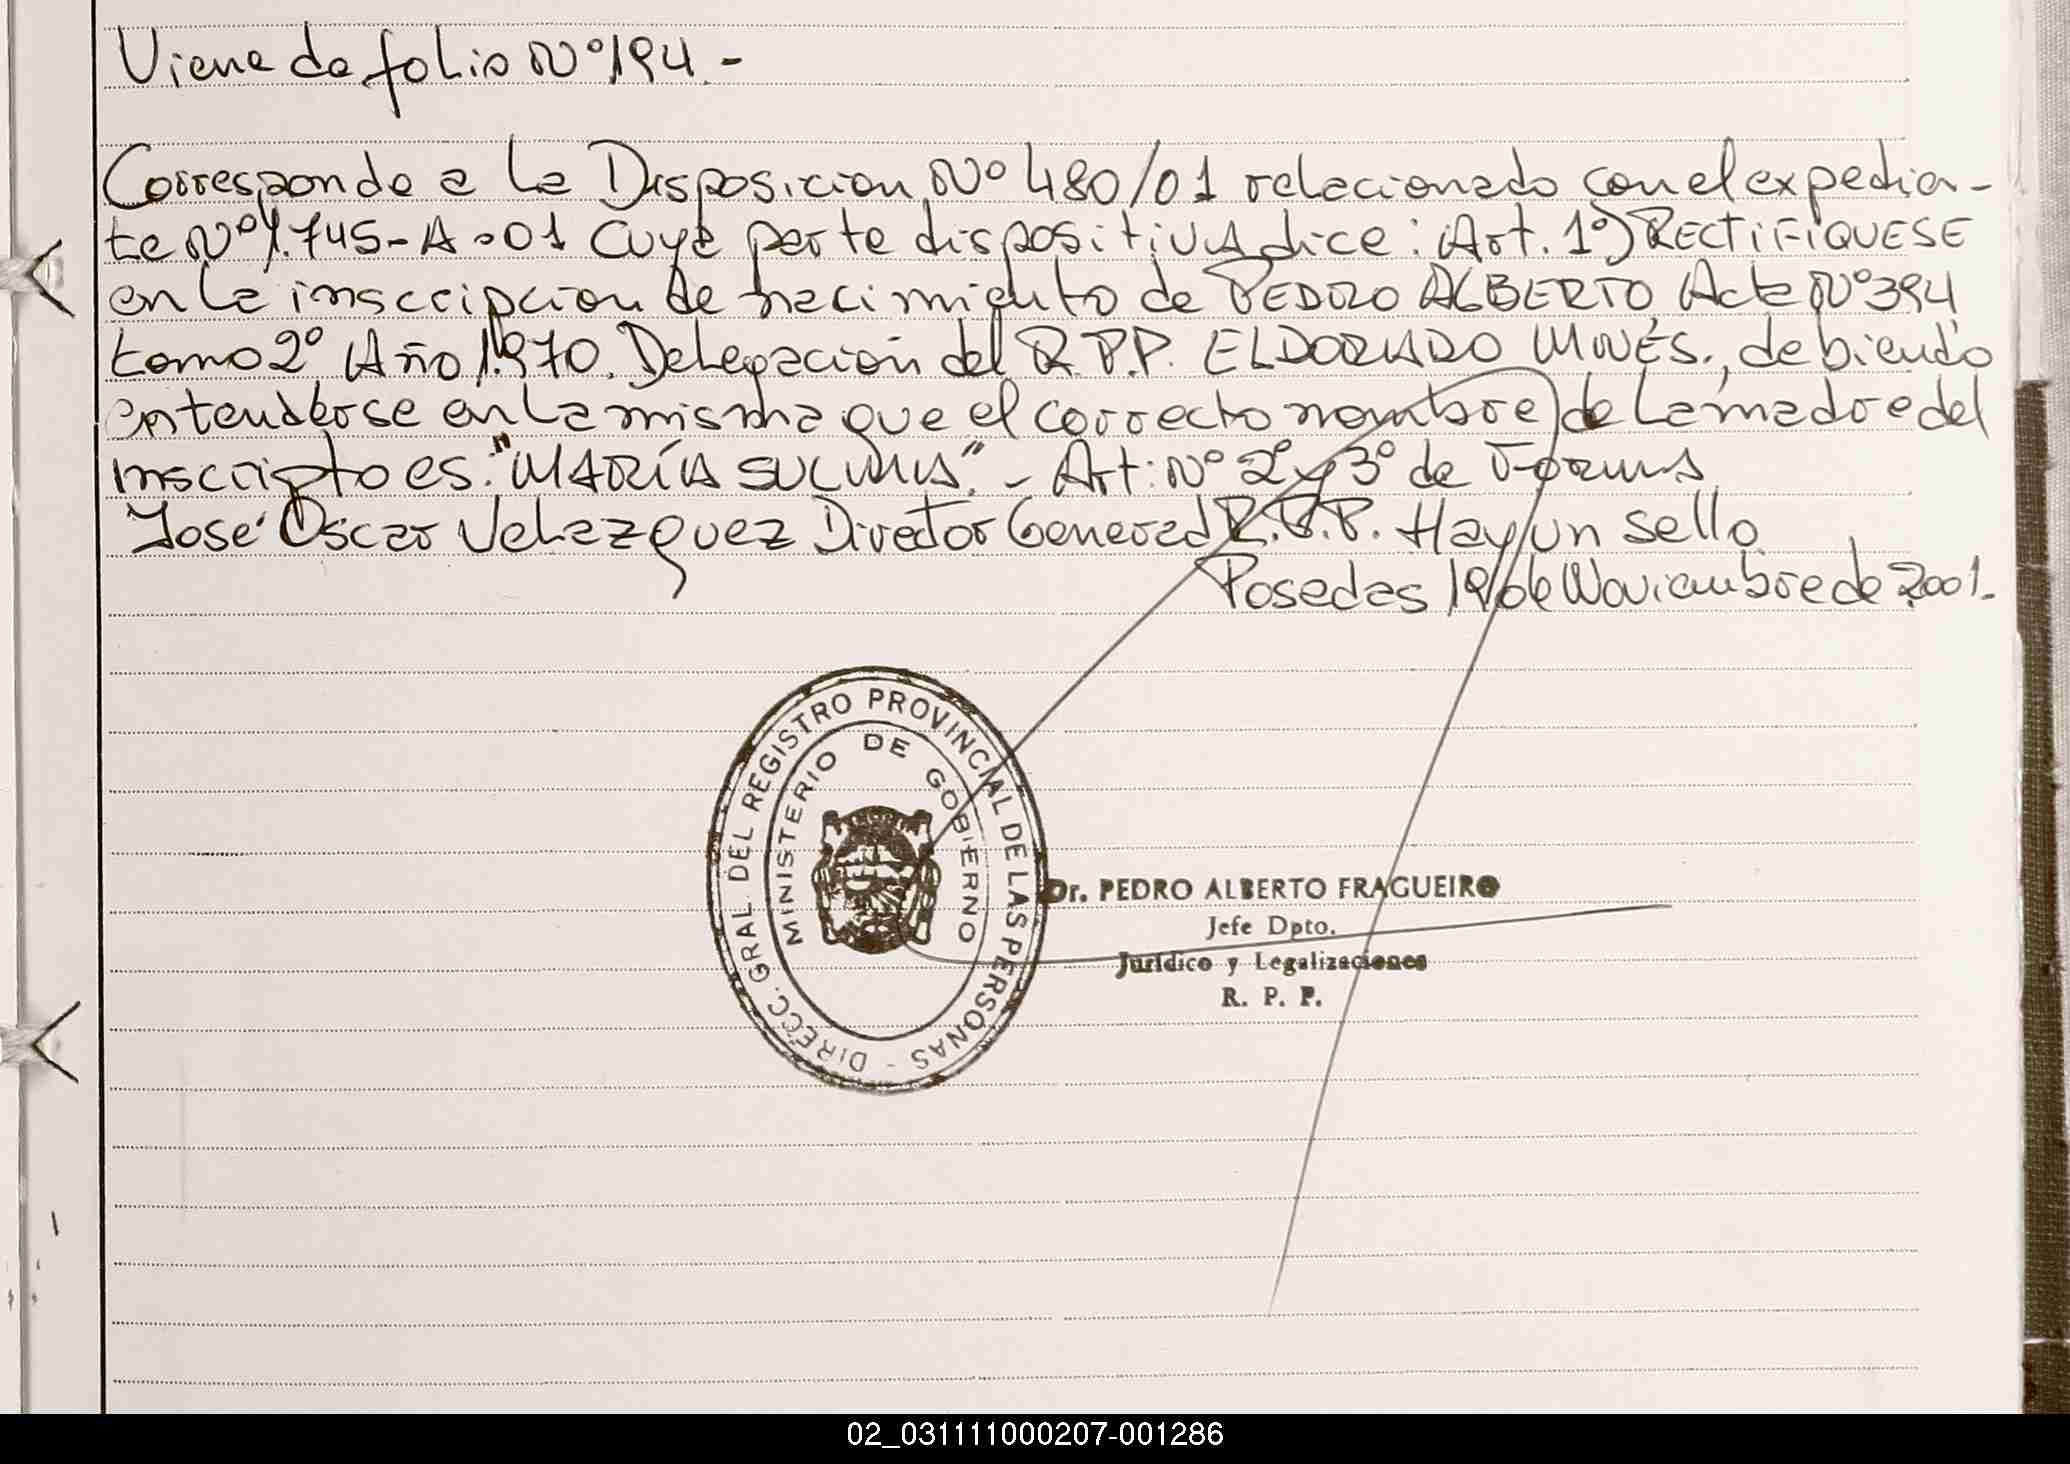 Viene de folio Nº 194.-
Corresponde a la Disposicion Nº 480/01 relacionado con el expedien-
te Nº 1.745-A-01 cuya parte dispositiva dice: Art. 1º) RECTIFIQUESE
en la inscripcion de nacimiento de PEDRO ALBERTO, Acta Nº 394
tomo 2º Año 1.970. Delegacion del R.P.P. ELDORADO MNES., debiendo
entenderse en la misma que el correcto nombre de la madre del
inscripto es: "MARÍA SULMA". - Art: Nº 2º y 3º de Forma
José Oscar Velazquez Director General R.P.P. Hay un sello
Posadas 19 de Noviembre de 2001.-
DIRECC. GRAL. DEL REGISTRO PROVINCIAL DE LAS PERSONAS -
MINISTERIO DE GOBIERNO
Dr. PEDRO ALBERTO FRAGUEIRO
Jefe Dpto.
Jurídico y Legalizaciones
R. P. P.
02_031111000207-001286